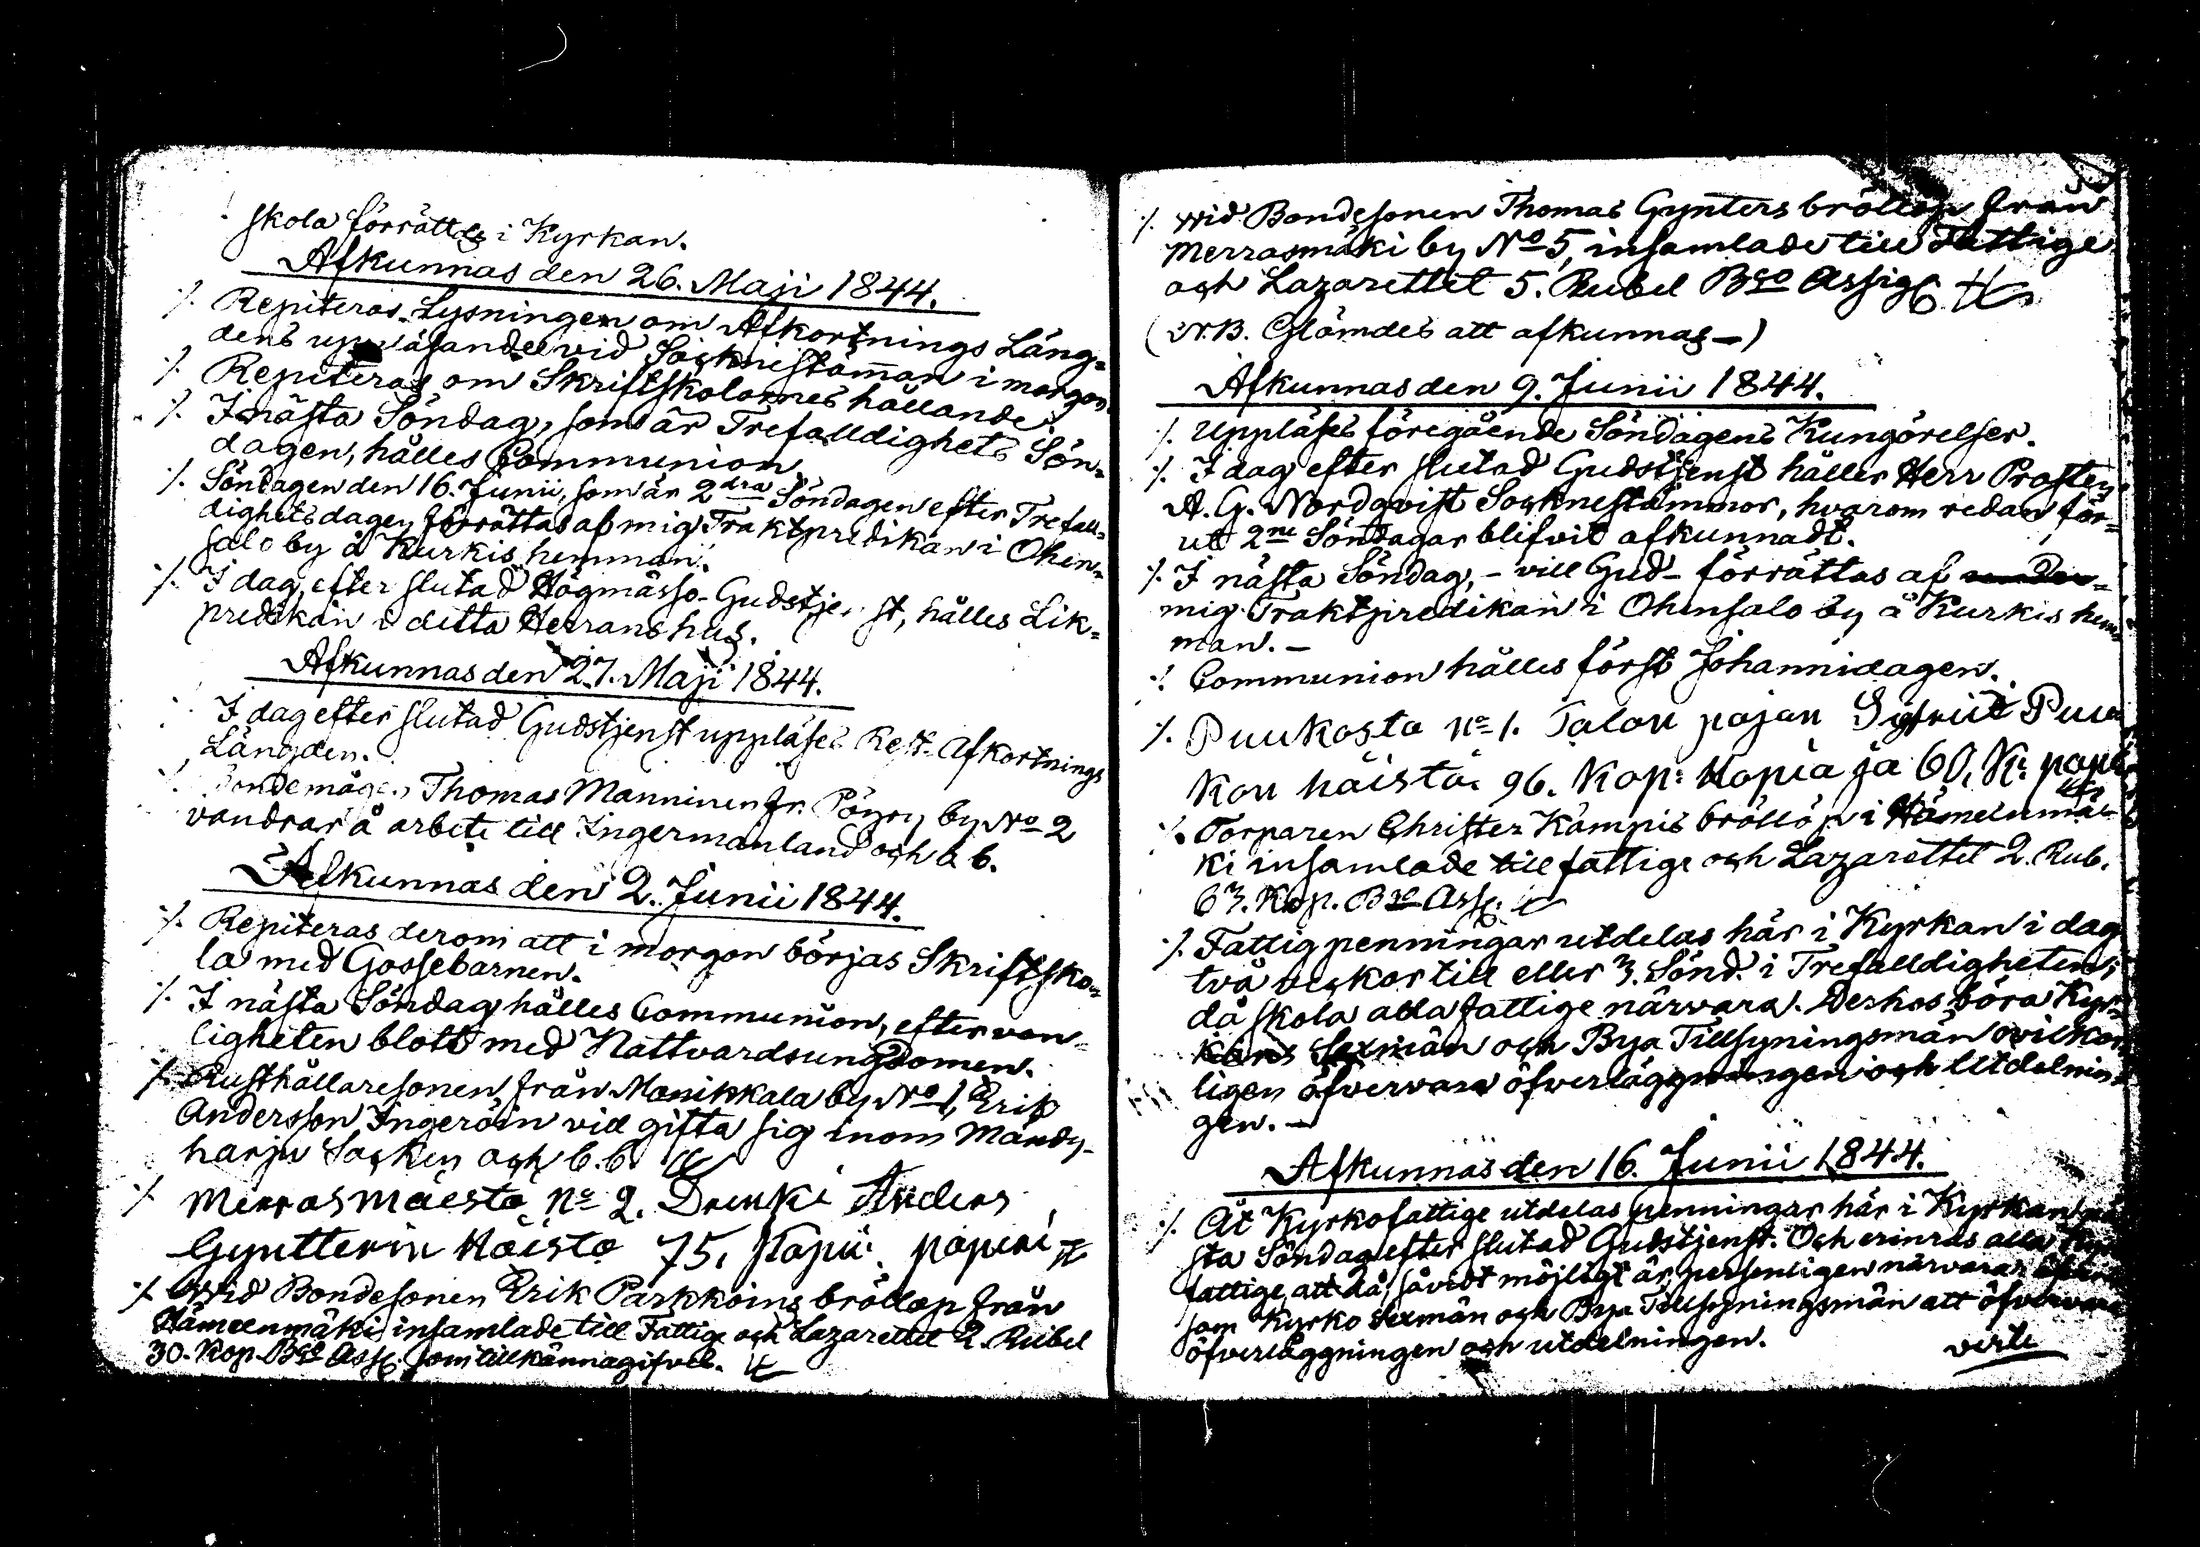 skola förrättes i Kyrkan.
Afkunnas den 26. Maji 1844.
⁒ Repiteras Lysningen om Afkortnings Läng-
dens uppläsande vid Socknestämman i morgon
⁒ Repiteras om Skriftskolornes hållande
⁒ I nästa Söndag, som är Trefalldighets Sön-
dagen, hålles Communion.
⁒ Söndagen den 16. Junii, som är 2dra Söndagen efter Trefall-
dighetsdagen förrättas af mig Traktpredikan i Ohen-
salo by å Kurkis hemman.
⁒ I dag, efter slutad Högmässo-Gudstjenst, hålles Lik-
predikan i detta Herrans hus.
Afkunnas den 27. Maji 1844.
I dag efter slutad Gudstjenst uppläses Rest-Afkortnings
Längden.
Thomas Manninen fr. Pöyry by No 2
vandrar å arbete till Ingermanland och a b.
Afkunnas den 2. Junii 1844.
⁒ Repiteras derom att i morgon börjas Skriftsko-
la med Gossebarnen.
⁒ I nästa Söndag hålles Communion, efter van-
ligheten blott med Nattvardsungdomen.
⁒ Rusthållaresonen från Manikkala by No 1, Erik
Andersson Ingeröin vill gifta sig inom Mändy-
harju Socken och b.b.
⁒ Merrasmäestä no 2. Drenki Anders
Gyntterin Häistä 75. Kopii: paperi
⁒ Wid Bondesonen Erik Parkkoins bröllop från
Hämeenmäki insamlade till Fattige och Lazarettet 2. Rubel
30. Kop. Bco Ass. som tillkännagifves.
⁒ Wid Bondesonen Thomas Gynters bröllop från
Merrasmäki by No 5, insamlade till Fattige
och Lazarettet 5. Rubel Bco Assig
(N.B. Glömdes att afkunnas—)
Afkunnas den 9. Junii 1844.
⁒ Uppläses föregående Söndagens Kungörelser.
⁒ I dag efter slutad Gudstjenst håller Herr Prosten
A. G. Nordqvist Socknestämmor, hvarom redan för-
ut 2ne Söndagar blifvit afkunnadt.
⁒ I nästa Söndag, - vill Gud - förrättas af
mig Traktpredikan i Ohensalo by å Kurkis hem-
man. —
⁒ Communion hålles först Johannidagen.
⁒ Puukosta no 1. Talon pojan Sigfrid Puu
Kon häistä 96. Kop: Kopia ja 60. K:
⁒ Torparen Christer Kämpis bröllop i Hämeenmä-
ki insamlade till fattige och Lazarettet 2. Rub.
63. Kop. Bco Ass.
⁒ Fattigpenningar utdelas här i Kyrkan i dag
två veckor till eller 3. Sönd. i Trefalldigheten;
då skola alla fattige närvara. Deshos böra Kyr-
kans Sexmän och Bya Tillsyningsmän ovilkor-
ligen öfvervara öfverläggningen och Utdelnin-
gen. —
Afkunnas den 16. Junii 1844.
⁒ Åt Kyrkofattige utdelas penningar här i Kyrkan
sta Söndag efter slutad Gudstjenst. Och erinras alla
fattige, att då, såvidt möjligt är, personligen närvara,
som Kyrko Sexmän och Bya Tillsyningsmän att öfvervara
öfverläggningen och utdelningen.
verte